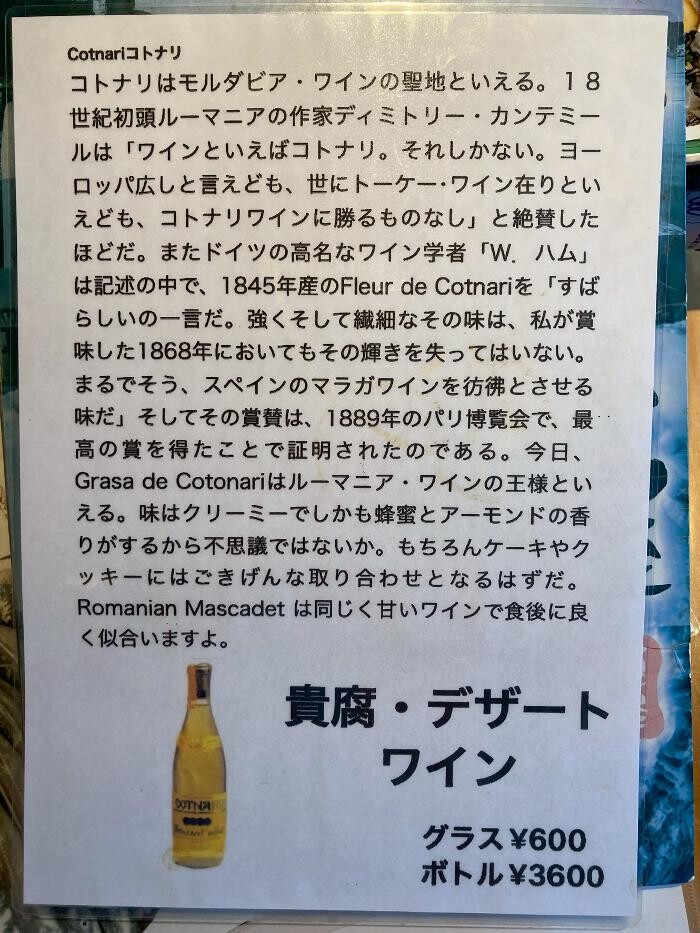 Cotnariコトナリ
コトナリはモルダビア・ワインの聖地といえる。１８
世紀初頭ルーマニアの作家ディミトリー・カンテミー
ルは「ワインといえばコトナリ。それしかない。ヨー
ロッパ広しと言えども、世にトーケー・ワイン在りとい
えども、コトナリワインに勝るものなし」と絶賛した
ほどだ。またドイツの高名なワイン学者「W．ハム」
は記述の中で、1845年産のFleur de Cotnariを「すば
らしいの一言だ。強くそして繊細なその味は、私が賞
味した1868年においてもその輝きを失ってはいない。
まるでそう、スペインのマラガワインを彷彿とさせる
味だ」そしてその賞賛は、1889年のパリ博覧会で、最
高の賞を得たことで証明されたのである。今日、
Grasa de Cotonariはルーマニア・ワインの王様とい
える。味はクリーミーでしかも蜂蜜とアーモンドの香
りがするから不思議ではないか。もちろんケーキやク
ッキーにはごきげんな取り合わせとなるはずだ。
Romanian Mascadet は同じく甘いワインで食後に良
く似合いますよ。
貴腐・デザート
ワイン
COTNARI
グラス¥600
ボトル¥3600